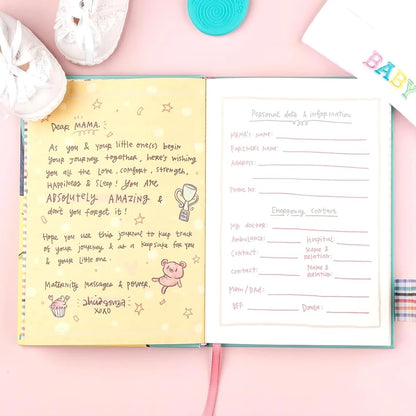 Dear MAMA,
As you & your little one(s) begin
your journey together, here's wishing
you all the love, comfort, strength,
Happiness & Sleep! You Are
Absolutely Amazing &
don't you forget it!
Hope you use this journal to keep track
of your journey & as a keepsake for you
& your little one.
Maternity Messages & power,
xoxo
Personal data & information
Mama's name:
Partner's name:
Address:
Phone no:
Emergency contact
My doctor:
Ambulance:
Hospital:
Contact:
Name &
Relation:
Contact:
Name &
Relation:
Mum / Dad:
Doula:
BABY